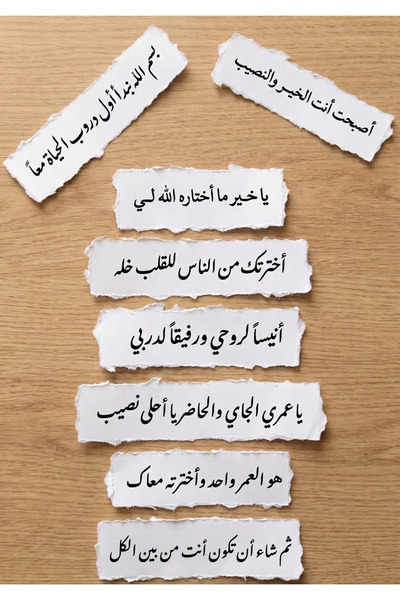 بسم الله نبدأ أول دروب الحياة معاً
أصبحت أنت الخير والنصيب
يا خير ما أختاره الله لي
أخترتك من الناس للقلب خله
أنيساً لروحي ورفيقاً لدربي
يا عمري الجاي والحاضر يا أحلى نصيب
هو العمر واحد وأخترته معاك
ثم شاء أن تكون أنت من بين الكل